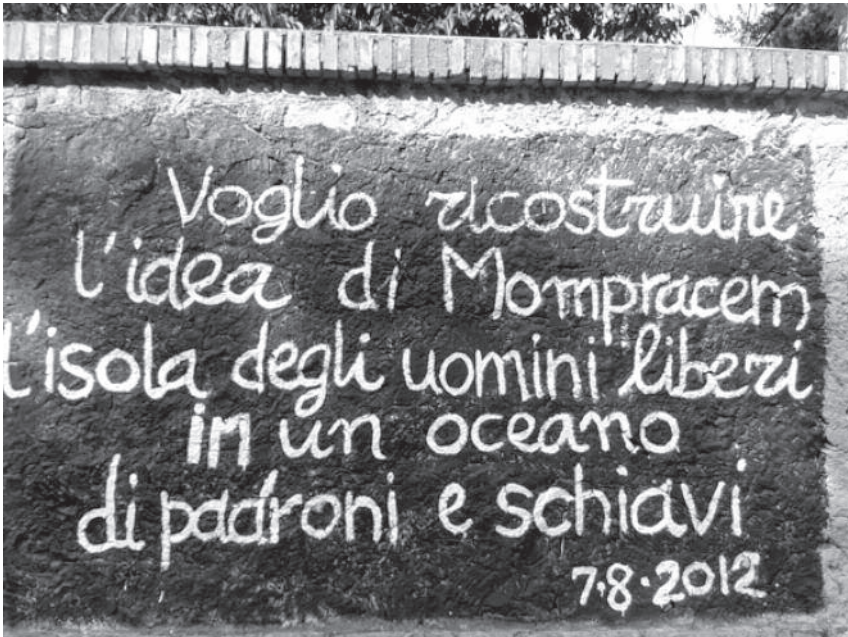 Voglio ricostruire
l'idea di Mompracem
l'isola degli uomini liberi
in un oceano
di padroni e schiavi
7.8.2012